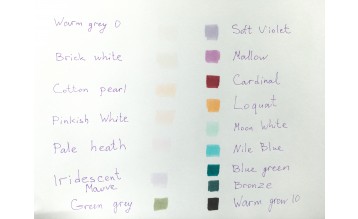 Warm grey 0
Brick white
Cotton pearl
Pinkish White
Pale heath
Iridescent
Mauve
Green grey
Soft Violet
Mallow
Cardinal
Loquat
Moon White
Nile Blue
Blue green
Bronze
Warm grow 10